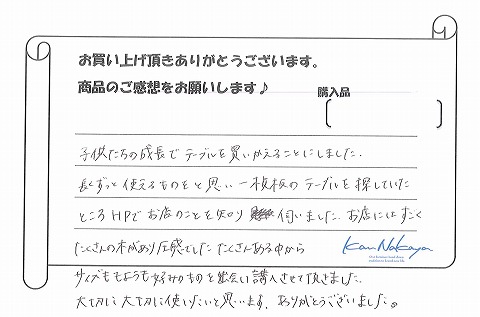 お買い上げ頂きありがとうございます。
商品のご感想をお願いします♪
購入品
子供たちの成長でテーブルを買いかえることにしました.
長くずっと使えるものをと思い一枚板のテーブルを探していた
ところHPでお店のことを知り 伺いました.お店にはすごく
たくさんの木があり圧感でした たくさんある中から
サイズももようも好みのものと出会い購入させて頂きました.
大切に大切に使いたいと思います.ありがとうございました。